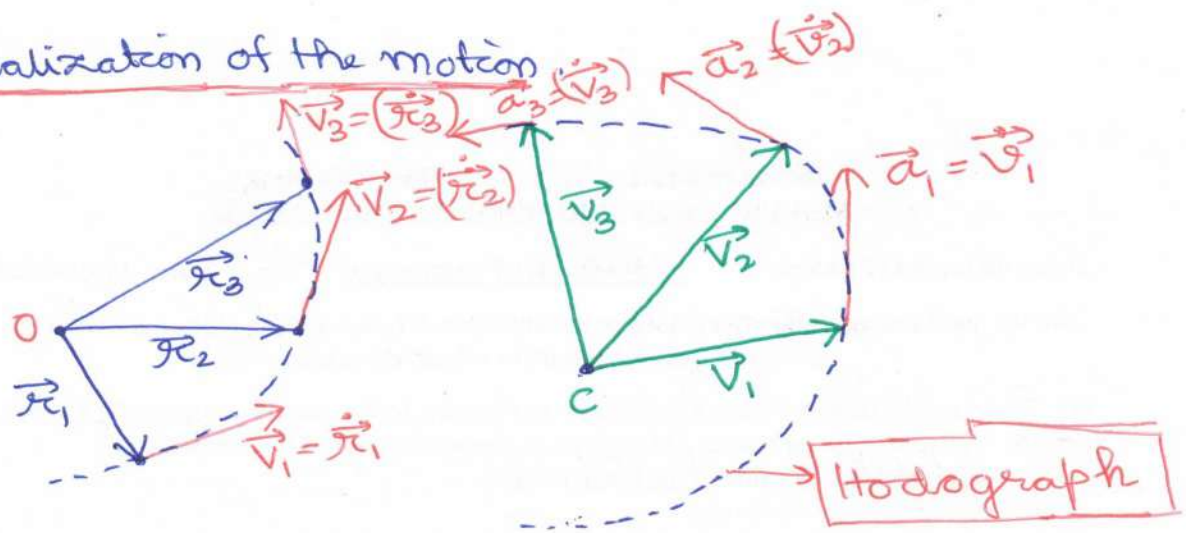 alization of the motion
v⃗₃=(ṙ⃗₃)
a⃗₃=(v̇⃗₃)
a⃗₂=(v̇⃗₂)
v⃗₂=(ṙ⃗₂)
a⃗₁=v̇⃗₁
v⃗₃
v⃗₂
r⃗₃
O
r⃗₂
r⃗₁
v⃗₁
C
v⃗₁=ṙ⃗₁
Hodograph